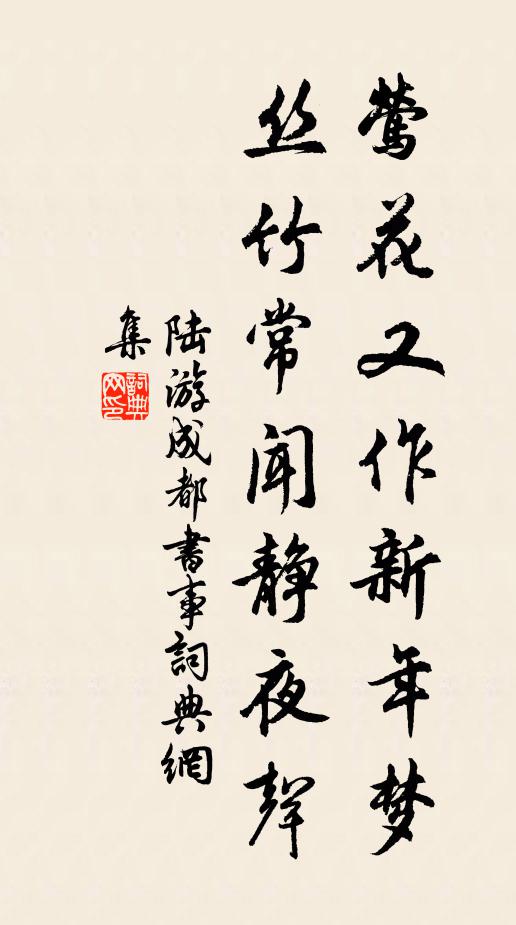 莺花又作新年梦
丝竹常闻静夜聲
陆游成都書事詞典網
集
詞典
网印